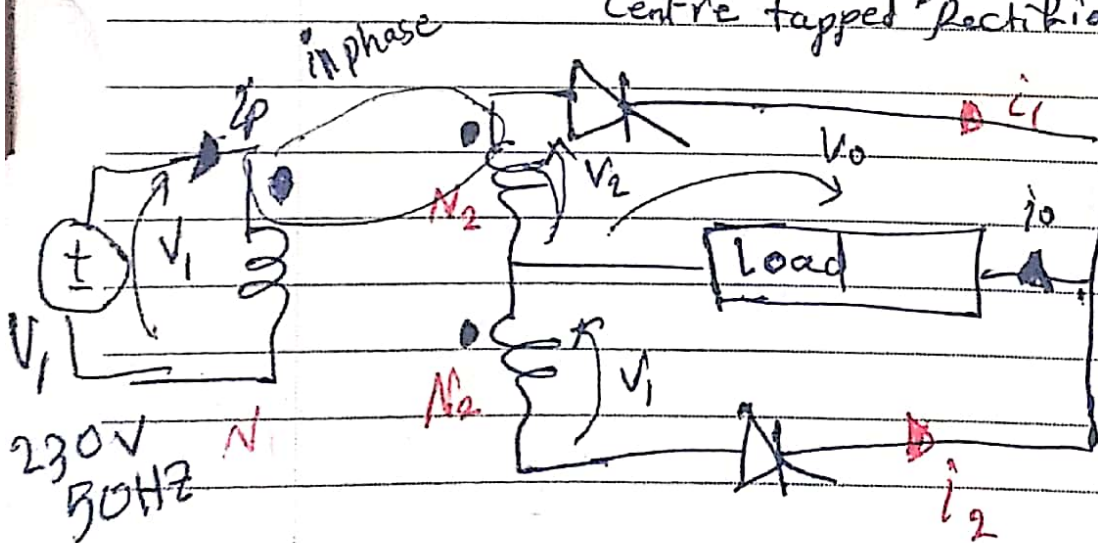 Centre tapped Rectifie
in phase
ip
i1
V2
Vo
N2
io
V1
±
Load
V1
N2
V1
230V
N1
50HZ
i2